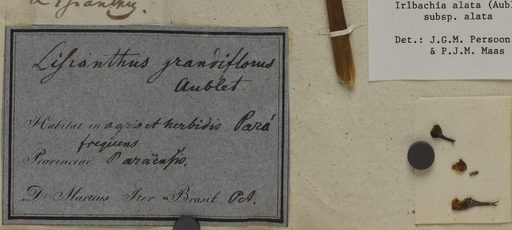 Lisianthus
Lisianthus grandiflorus
Aublet
Habitat in agris et herbidis Pará
frequens
Provinciae Paraënsis.
Dr. Martius Iter Brasil. Oct.
Irlbachia alata (Aubl
subsp. alata
Det.: J.G.M. Persoon
& P.J.M. Maas